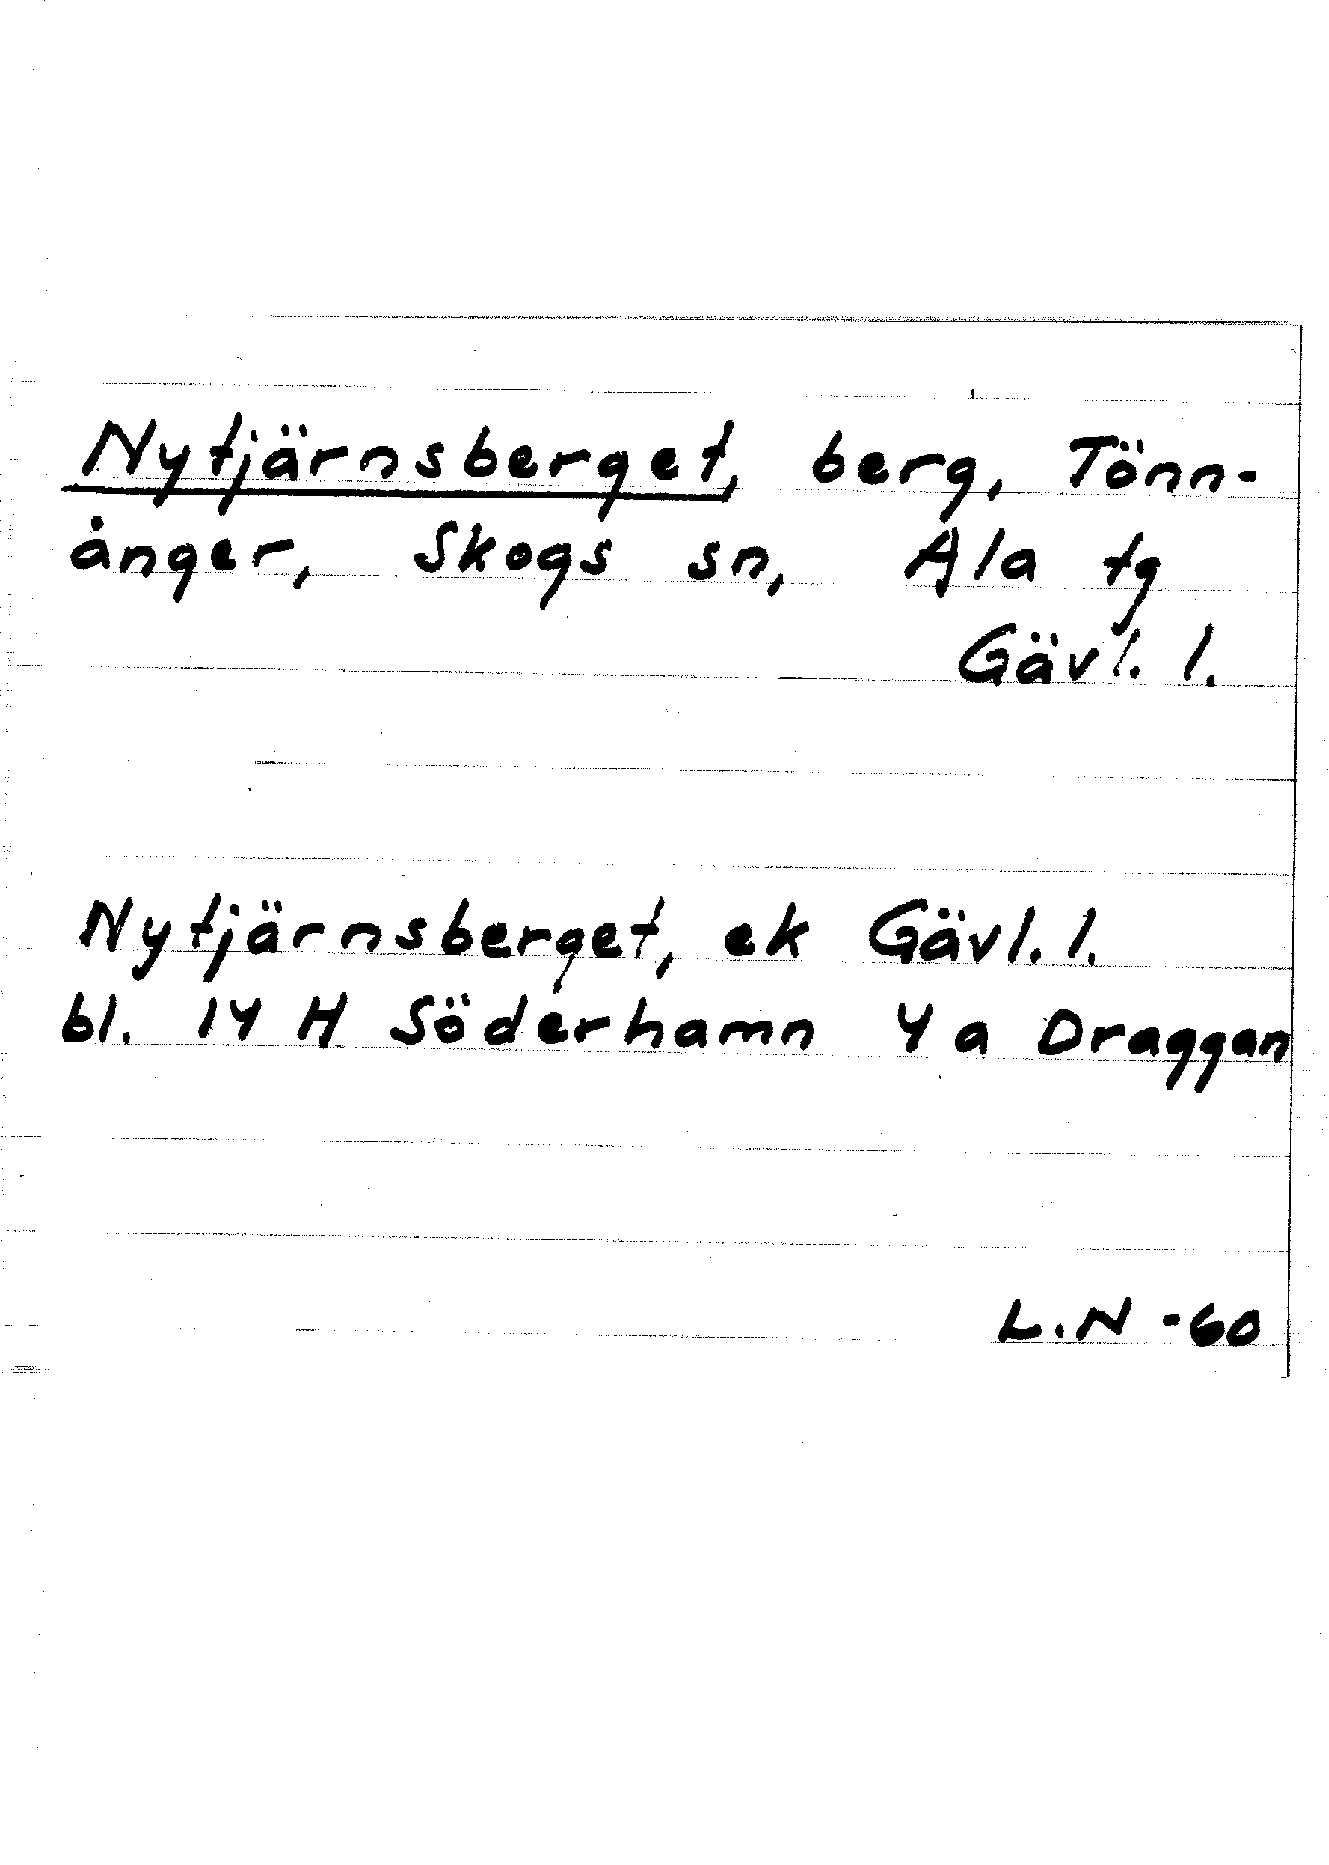 Nytjärnsberget, berg, Tönn-
ånger, Skogs sn, Ala tg
Gävl. l.
Nytjärnsberget, ek Gävl. l.
bl. 14 H Söderhamn 4 a Draggan
L.N -60